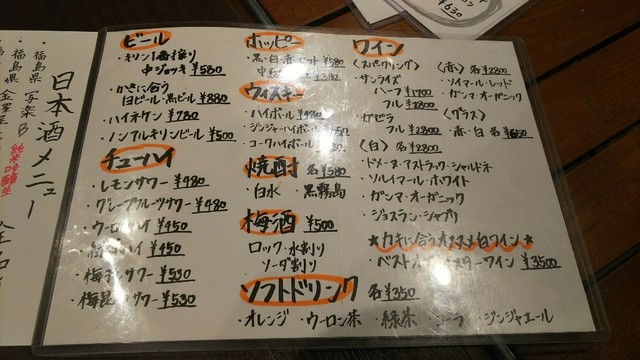 ¥630
日本酒メニュー
・福島県 写楽
純米吟醸生
・福島県
ビール
・キリン一番搾り
中ジョッキ ¥580
・かきに合う
白ビール・黒ビール ¥880
・ハイネケン ¥780
・ノンアルキリンビール ¥500
チューハイ
・レモンサワー ¥480
・グレープフルーツサワー ¥480
・ウーロンハイ ¥450
・緑茶ハイ ¥450
・梅干しサワー ¥530
・梅昆 サワー ¥530
ホッピー
・黒・白・赤セット ¥580
ウィスキー
・ハイボール
・ジンジャーハイボール
・コークハイボール
焼酎 各¥580
・白水 ・黒霧島
梅酒 ¥500
ロック・水割り
ソーダ割り
ソフトドリンク 各¥350
・オレンジ ・ウーロン茶 ・緑茶 ・コーラ ・ジンジャエール
ワイン
〈スパークリング〉
・サンライズ
ハーフ ¥1700
フル ¥2800
・ガビラ
フル ¥2800
〈白〉 ¥2800
・ドメーヌ・アストラック・シャルドネ
・ソルイマール・ホワイト
・ガンマ・オーガニック
・ジョスラン・シャブリ
〈赤〉 各¥2800
・ソイマール・レッド
・ガンマ・オーガニック
〈グラス〉
・赤・白 各
★カキに合うオススメ白ワイン★
・ベストオイスターワイン ¥3500